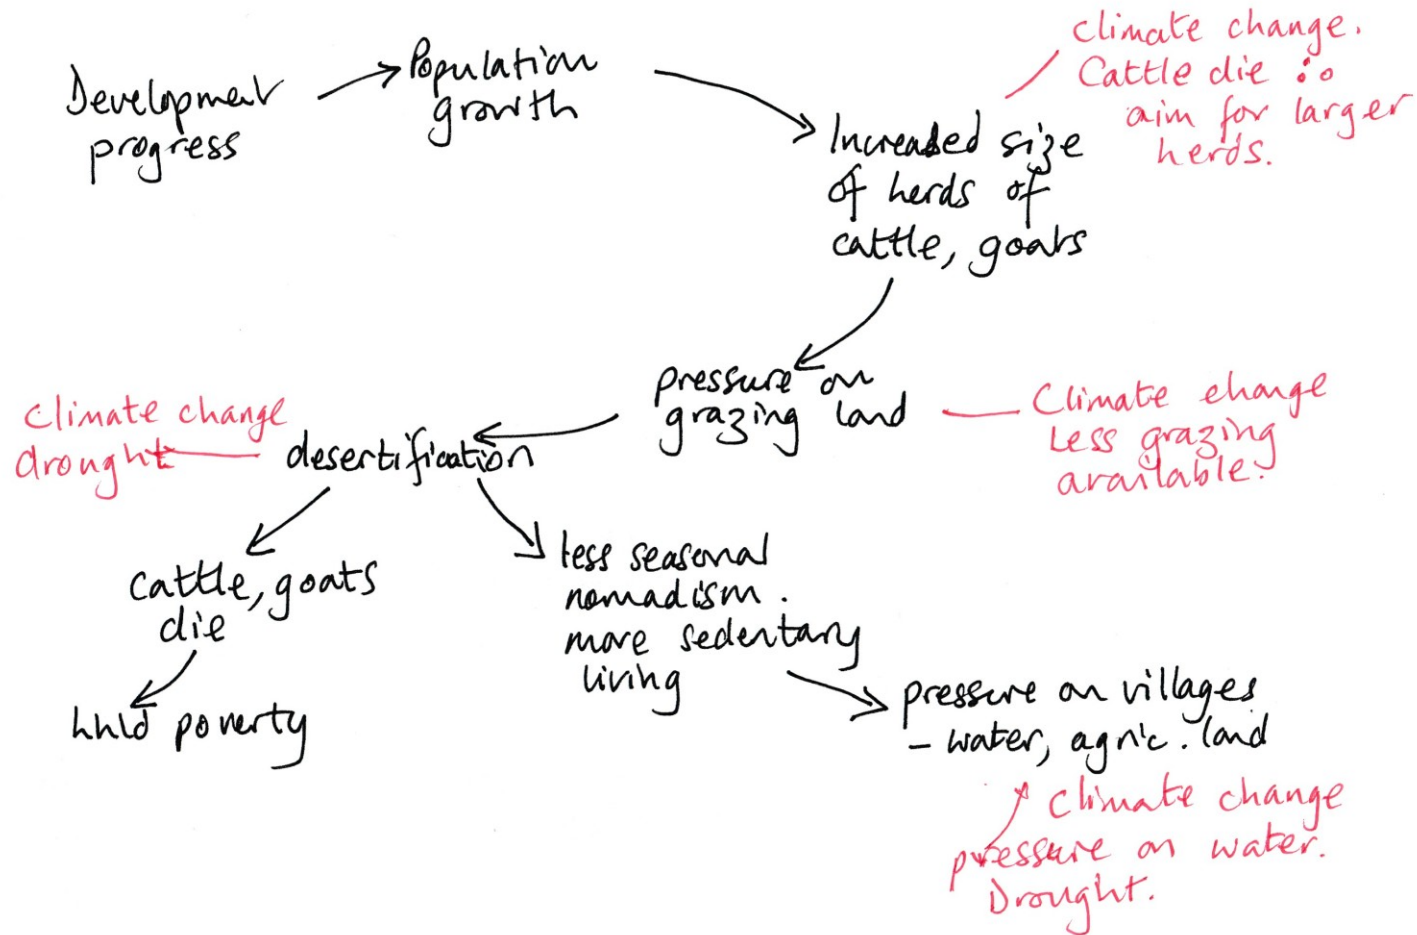 Development
progress
Population
growth
Increased size
of herds of
cattle, goats
climate change.
Cattle die ∴
aim for larger
herds.
pressure on
grazing land
Climate change
Less grazing
available.
desertification
Climate change
drought
cattle, goats
die
hhld poverty
less seasonal
nomadism.
more sedentary
living
pressure on villages
- water, agric. land
Climate change
pressure on water.
Drought.